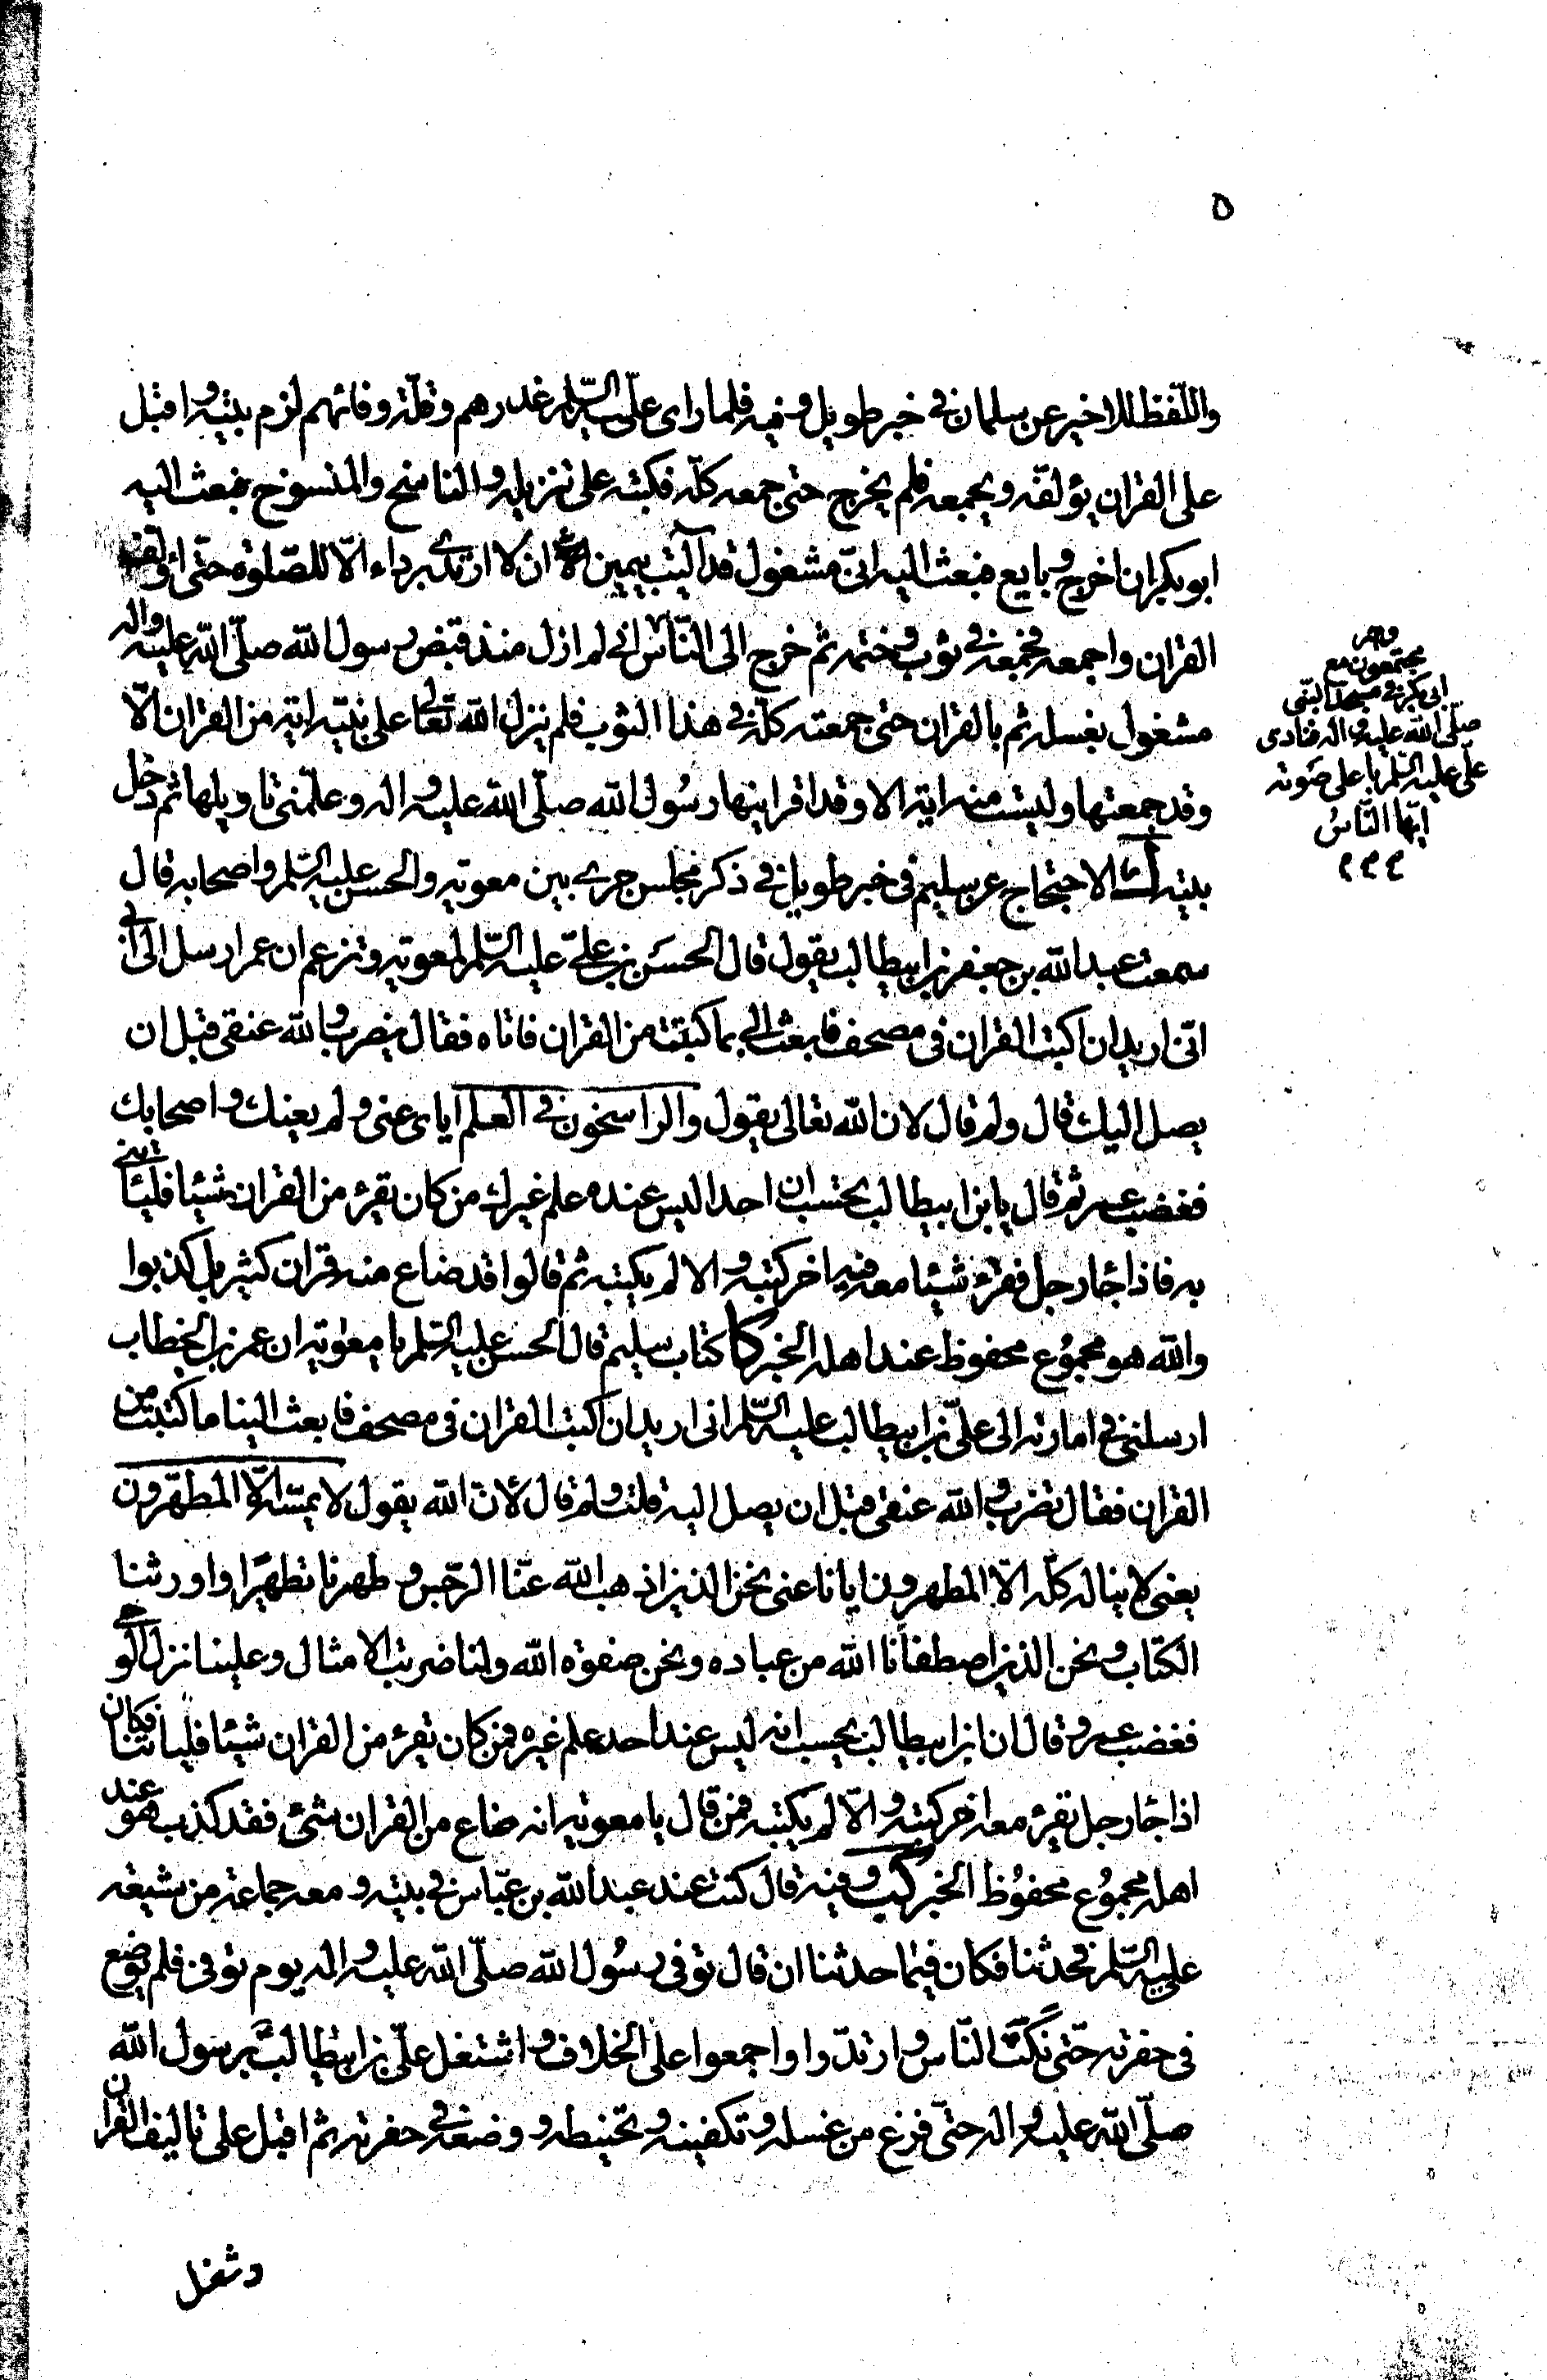 ٥
واللّفظ للاخير عن سلمان فى خبر طويل و فيه فلما راى علىّ عليه السّلم غدرهم و قلّة وفائهم لزم بيته و اقبل
على القران يؤلفّه و يجمعه فلم يخرج حتى جمعه كلّه فكتبه على تنزيله و الناسخ والمنسوخ فبعث اليه
ابو بكر ان اخرج و بايع فبعث اليه انىّ مشغول قد آليت بيمين ان لا ارتدى برداء الّا للصّلوة حتّى اؤلف
القران و اجمعه فجمعه فى ثوب و ختمه ثم خرج الى النّاس انى لم ازل منذ قبض رسول الله صلّى الله عليه واله
مشغول بغسله ثم بالقران حتى جمعته كلّه فى هذا الثوب فلم ينزل الله تعالى على نبيّه اية من القران الّا
و قد جمعتها و ليست منه اية الا و قد اقرانيها رسُول الله صلّى الله عليه و اله و علّمنى تاويلها ثم دخل
بيته الاحتجاج عن سليم فى خبر طويل فى ذكر مجلس جرى بين معوية والحسن عليه السّلم و اصحابه قال
سمعت عبد الله بن جعفر بن ابيطالب يقول قال الحسَن بن علىّ عليه السّلم لمعوية و تزعم ان عمر ارسل الى ابى
انىّ اريد ان اكتب القران فى مصحف فابعث الىّ بما كتبت من القران فاتاه فقال يضرب و الله عنقى قبل ان
يصل اليك قال و لم قال لان الله تعالى يقول والراسخون فى العلم اياى عنى و لم يعنك و اصحابك
فغضب عمر ثم قال يا بن ابيطالب تحسب ان احدا ليس عنده علم غيرك من كان يقرء من القران شيئا فليأتنى
به فاذا جاء رجل فقرء شيئا معه فيه اخر كتبه و الا لم يكتبه ثم قالوا قد ضاع منه قران كثير بل كذبوا
والله هو مجموُع محفوظ عند اهله الخبر كتاب سليم قال الحسن عليه السّلم يا معٰوية ان عمر بن الخطاب
ارسلنى فى امارته الى علىّ بن ابيطالب عليه السّلم انى اريد ان اكتب القران فى مصحف فابعث الينا ما كتبت من
القران فقال تضرب و الله عنقى قبل ان يصل اليه قلت و لم قال لأنّ الله يقول لا يمسّه الّا المطهّرون
يعنى لا يناله كلّه الّا المطهرون ايانا عنى نحن الذين اذهب الله عنّا الرّجس و طهرنا تطهيرًا و اورثنا
الكتاب و نحن الذين اصطفانا الله من عباده و نحن صفوة الله و لنا ضربت الامثال و علينا نزل الوحى
فغضب عمر و قال ان ابن ابيطالب يحسب انه ليس عند احد علم غيره فمن كان يقرء من القران شيئا فلياتنا فكان
اذا جاء رجل يقرء معه اخر كتبه و الّا لم يكتبه فمن قال يا معوية انه ضاع من القران شئ فقد كذب هو عند
اهله مجموُع محفوُظ الخبر و فيه قال كنت عند عبد الله بن عبّاس فى بيته و معه جماعة من شيعة
علىّ عليه السّلم فحدثنا فكان فيما حدثنا ان قال توفى رسُول الله صلّى الله عليه و اله يوم توفى فلم يوضع
فى حفرته حتّى نكث النّاس و ارتدّوا و اجمعوا على الخلاف و اشتغل علىّ بن ابيطالب برسول الله
صلّى الله عليه و اله حتىّ فرغ من غسله و تكفينه و تحنيطه و وضعه فى حفرته ثم اقبل على تاليف القران
و شغل
و هم
مجتمعون مع
ابى بكر فى مسجد النبّى
صلّى الله عليه و اله فنادى
علىّ عليه السّلم باعلى صَوته
ايّها النّاسُ